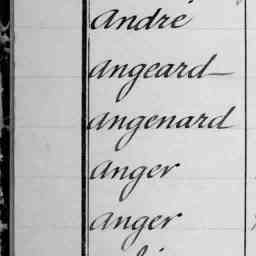 André
Angeard
Angenard
Anger
Anger